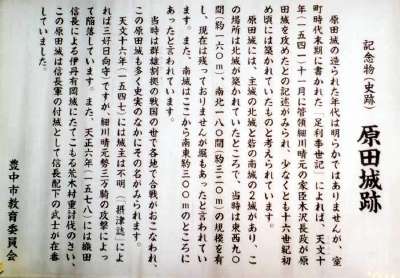 記念物（史跡） 原田城跡
原田城の造られた年代は明らかではありませんが、室
町時代末期に書かれた「足利季世記」によれば、天文十
年（一五四一）十一月に管領細川晴元の家臣木沢長政が原
田城を攻めたとの記述がみられ、少なくとも十六世紀初
め頃には築かれていたものと考えられています。
原田城には、主城の北城と砦の南城の２城があり、こ
の場所は北城が築かれていたところで、当時は東西九〇
間（約一六〇ｍ）、南北一八〇間（約三二〇ｍ）の規模を有
し、現在は残っておりませんが堀もあったと言われてい
ます。また、南城はここから南東約三〇〇ｍのところに
あったと言われています。
当時は群雄割拠の戦国の世で各地で合戦がおこなわれ、
この原田城も多く史実のなかにその名がみられます。
天文十六年（一五四七）には城主は不明（「摂津誌」によ
れば三好日向守）ですが、細川晴元勢三万騎の攻撃によっ
て陥落しています。また、天正六年（一五七八）には織田
信長による伊丹有岡城にたてこもる荒木村重討伐のさい、
この原田城は信長軍の付城として信長配下の武士が在番
していました。
豊中市教育委員会